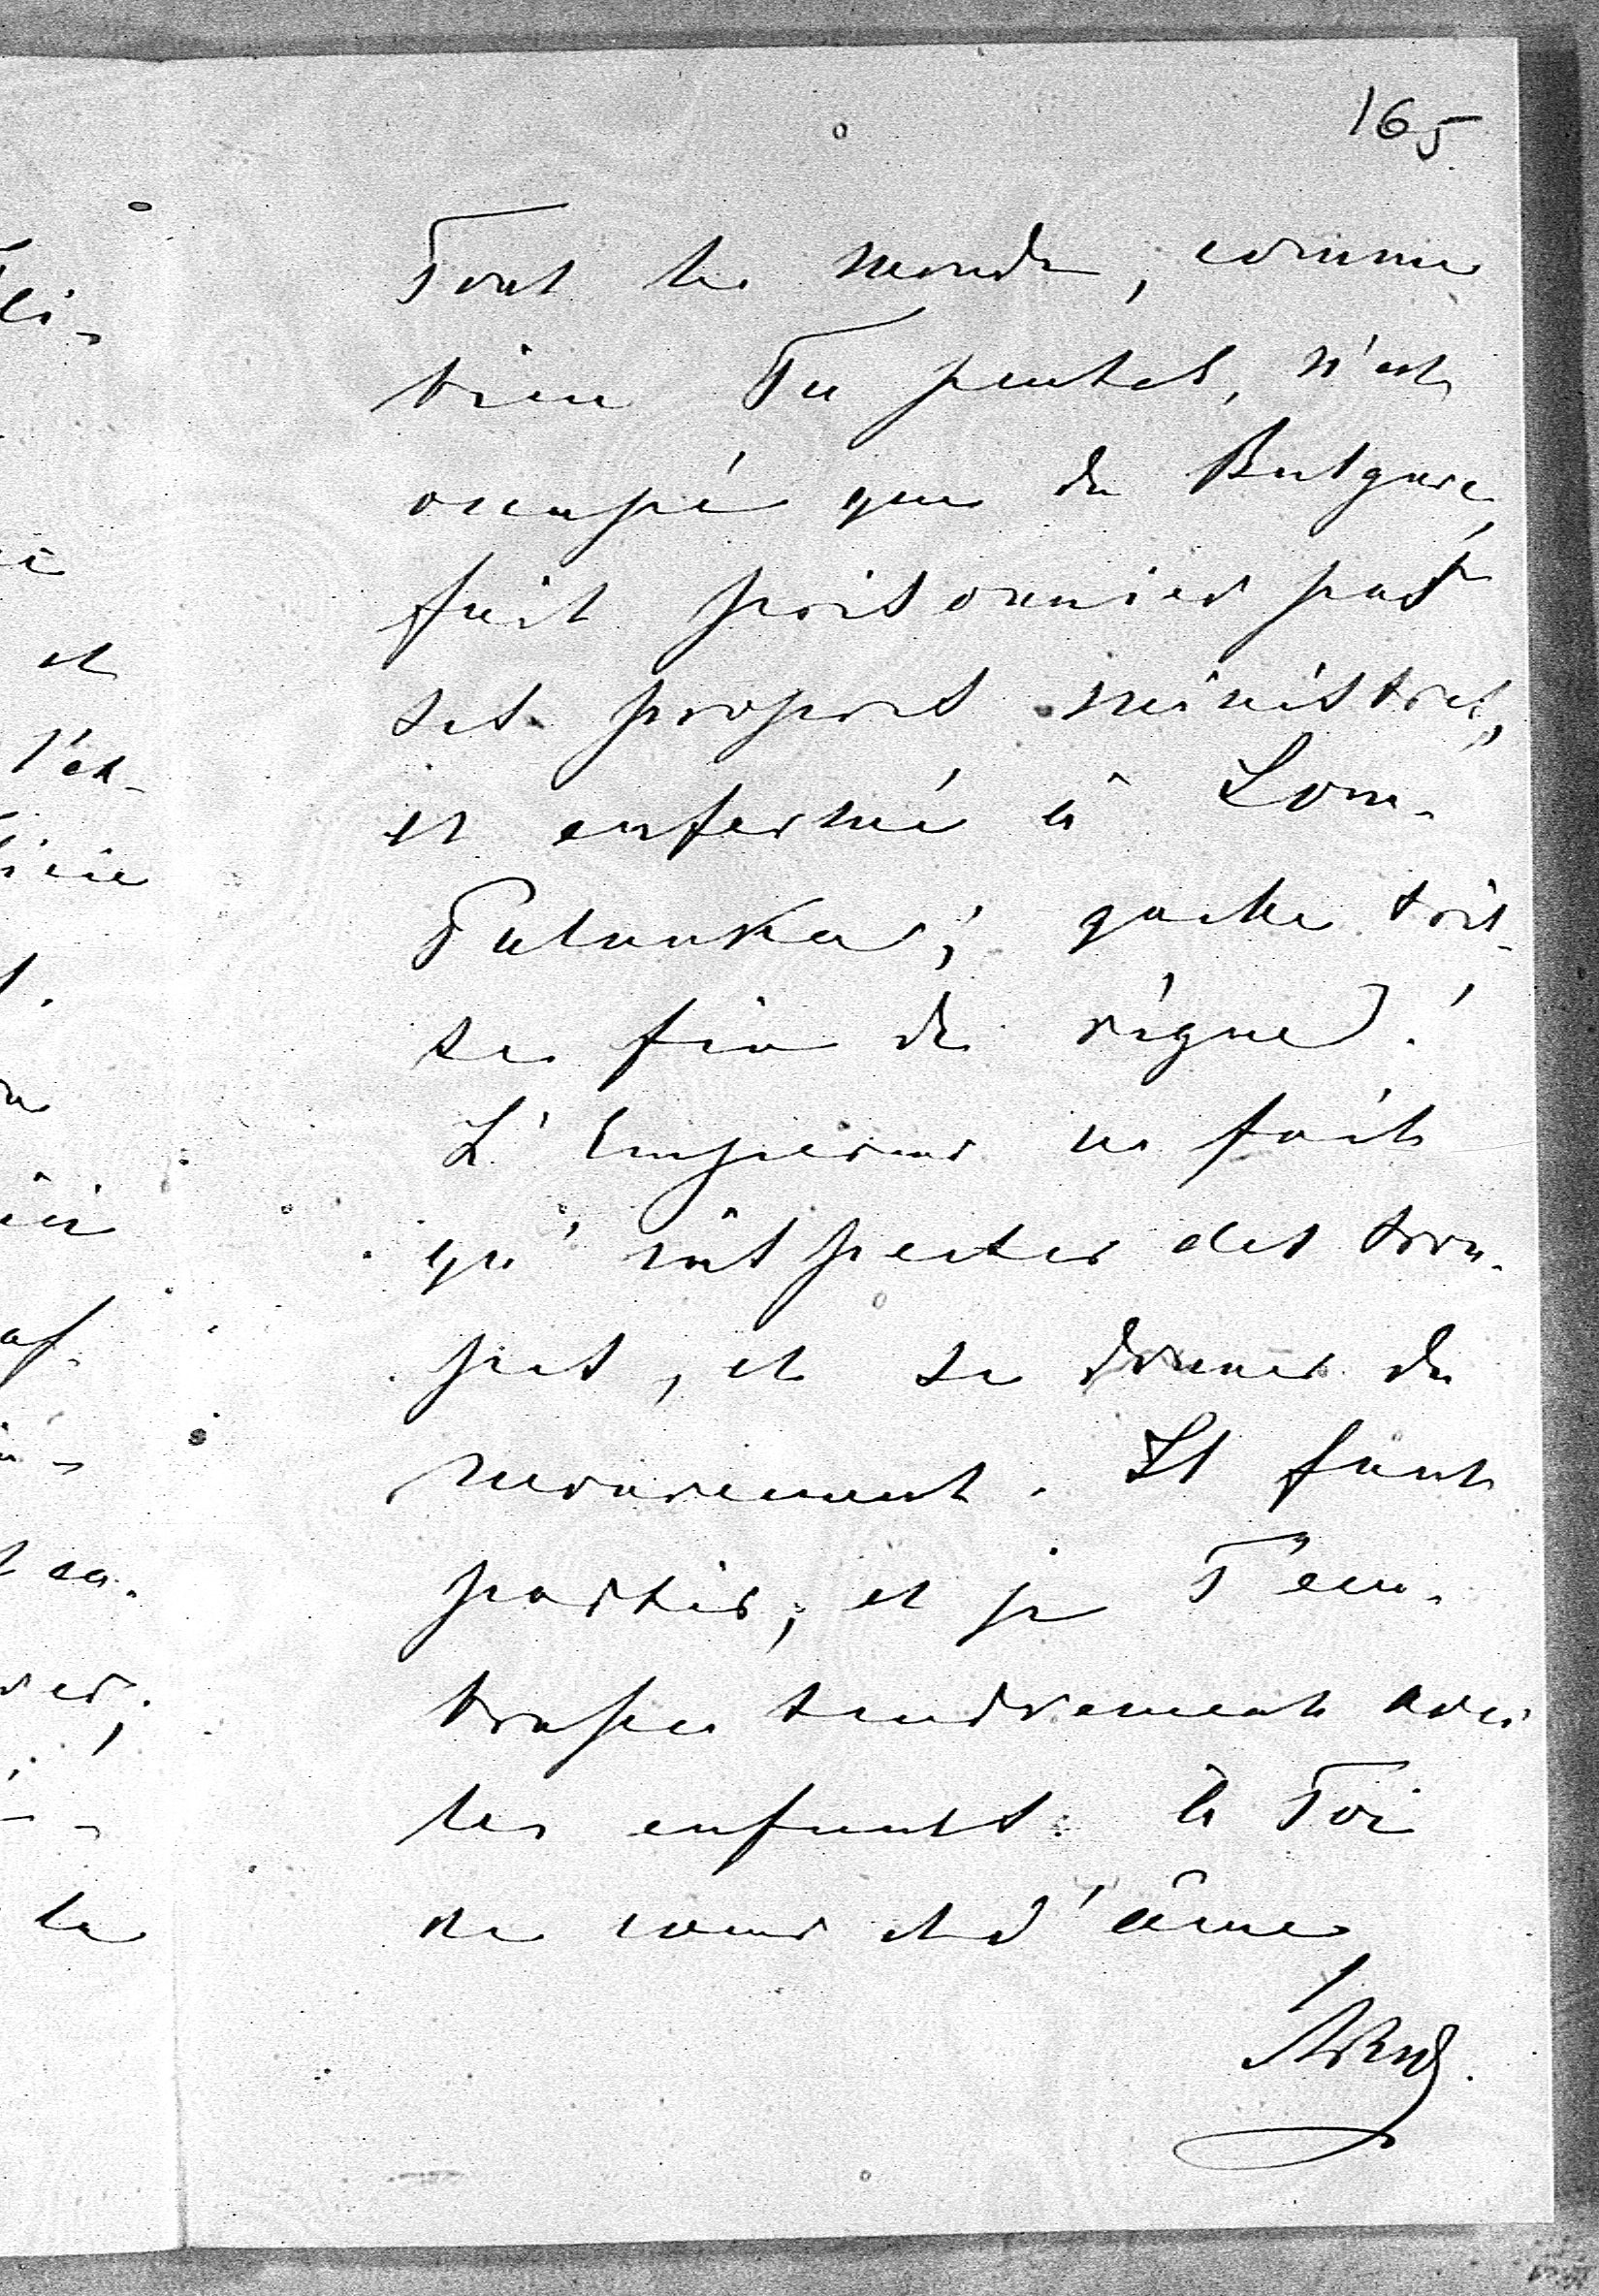 165
Tout le monde, comme
bien Tu penses, n'est
occupé que du Bulgare,
fait prisonnier par
ses propres ministres,
et enfermé à Lom-
Palanka; quelle tris-
se fin de règne!
L'Empereur ne fait
qu'inspecter des trou-
pes, et se donner du
mouvement. Il faut
partir, et je T'em-
brasse tendrement avec
les enfants. à Toi
de cœur et d'âme